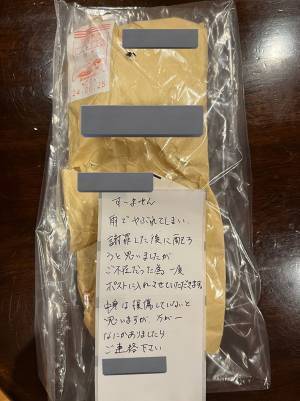 すーません
雨でやぶれてしまい、
謝罪した後に配ろ
うと思いましたが
ご不在だった為 一度
ポストに入れさせていただきます。
中身は損傷していないと
思いますが、万が一
なにかありましたら
ご連絡下さい